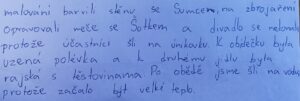 malování barvili stěnu se Sumcem, na zbrojaření
opravovali meče se Šotkem a divadlo se nekonalo
protože účastníci šli na únikovku. K obědu byla
uzená polévka a k druhému jídlu byla
rajská s těstovinama Po obědě jsme šli na vodu
protože začalo být velké teplo.